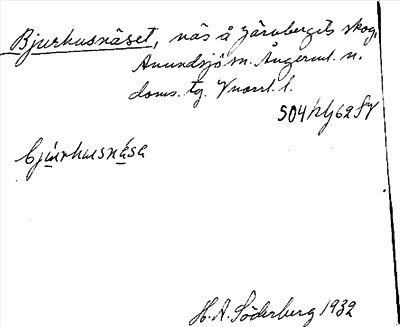 Bjurhusnäset, näs å Järnbergets skog,
Anundsjö sn. Ångerml. n.
doms. tg. Vnorrl. l.
504 h/y62 SV
bjúrhusnäsa
H. A. Söderberg 1932